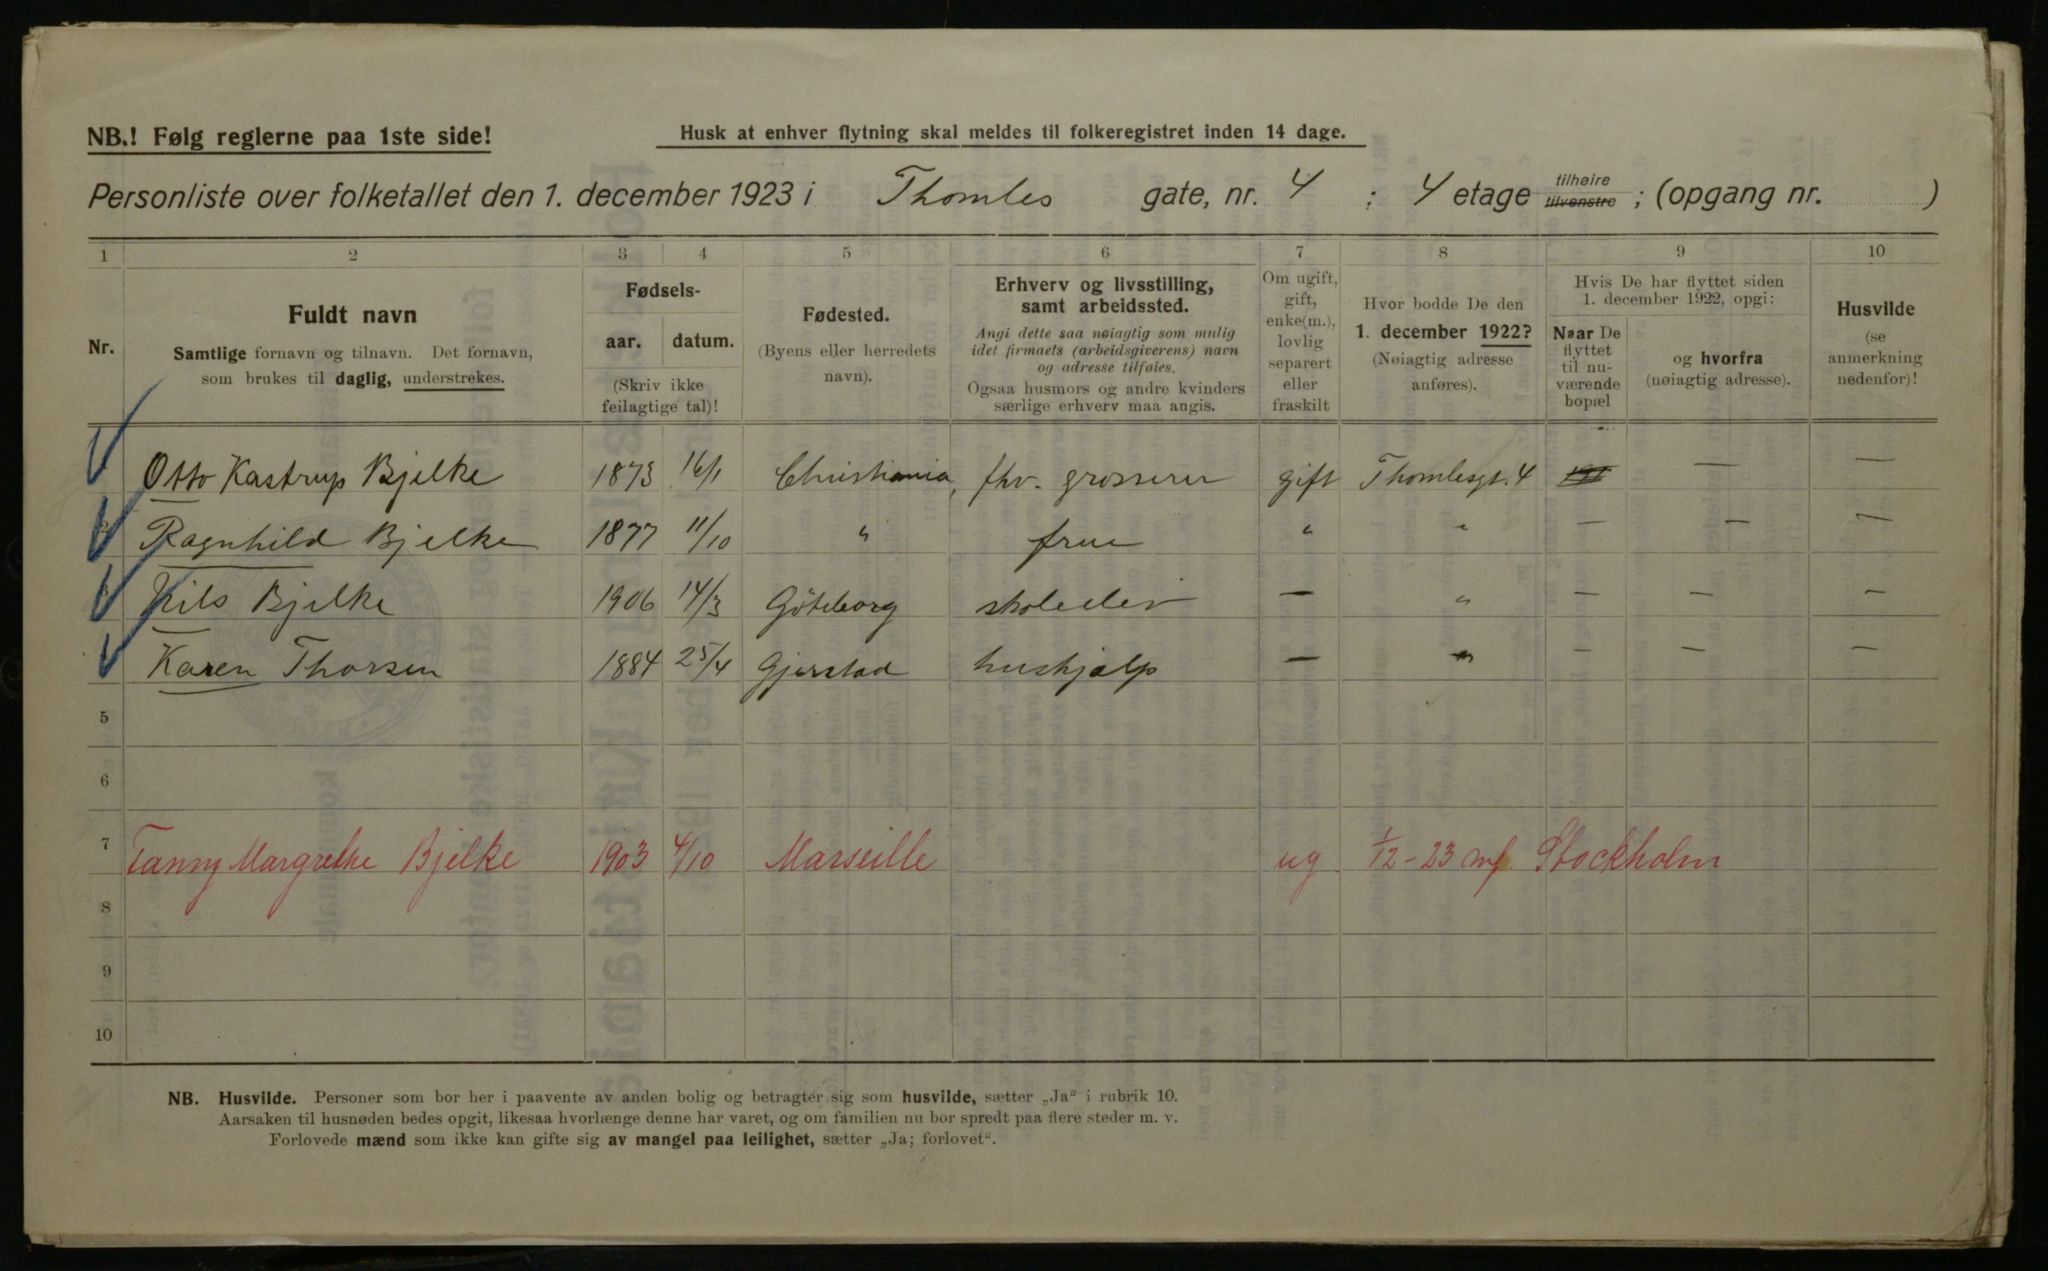 NB.! Følg reglerne paa 1ste side!
Husk at enhver flytning skal meldes til folkeregistret inden 14 dage.
Personliste over folketallet den 1. december 1923 i Thomles gate, nr. 4 ; 4 etage tilhøire tilvenstre ; (opgang nr. )
1 2 3 4 5 6 7 8 9 10
Nr.
Fuldt navn
Samtlige fornavn og tilnavn. Det fornavn,
som brukes til daglig, understrekes.
Fødsels-
aar. datum.
(Skriv ikke
feilagtige tal)!
Fødested.
(Byens eller herredets
navn).
Erhverv og livsstilling,
samt arbeidssted.
Angi dette saa nøiagtig som mulig
idet firmaets (arbeidsgiverens) navn
og adresse tilføies.
Ogsaa husmors og andre kvinders
særlige erhverv maa angis.
Om ugift,
gift,
enke(m.),
lovlig
separert
eller
fraskilt
Hvor bodde De den
1. december 1922?
(Nøiagtig adresse
anføres).
Hvis De har flyttet siden
1. december 1922, opgi:
Naar De
flyttet
til nu-
værende
bopæl
og hvorfra
(nøiagtig adresse).
Husvilde
(se
anmerkning
nedenfor)!
Otto Kastrup Bjelke 1873 16/1 Christiania, fhv. grosserer gift Thomlesgt. 4 — —
Ragnhild Bjelke 1877 11/10 " frue " " — — —
Nils Bjelke 1906 14/3 Göteborg skoleelev — " — — —
Karen Thorsen 1884 25/4 Gjerstad hushjælp — " — — —
5
6
7 Fanny Margrethe Bjelke 1903 4/10 Marseille ug. 1/12-23 mf. Stockholm
8
9
10
NB. Husvilde. Personer som bor her i paavente av anden bolig og betragter sig som husvilde, sætter „Ja“ i rubrik 10.
Aarsaken til husnøden bedes opgit, likesaa hvorlænge denne har varet, og om familien nu bor spredt paa flere steder m. v.
Forlovede mænd som ikke kan gifte sig av mangel paa leilighet, sætter „Ja; forlovet“.